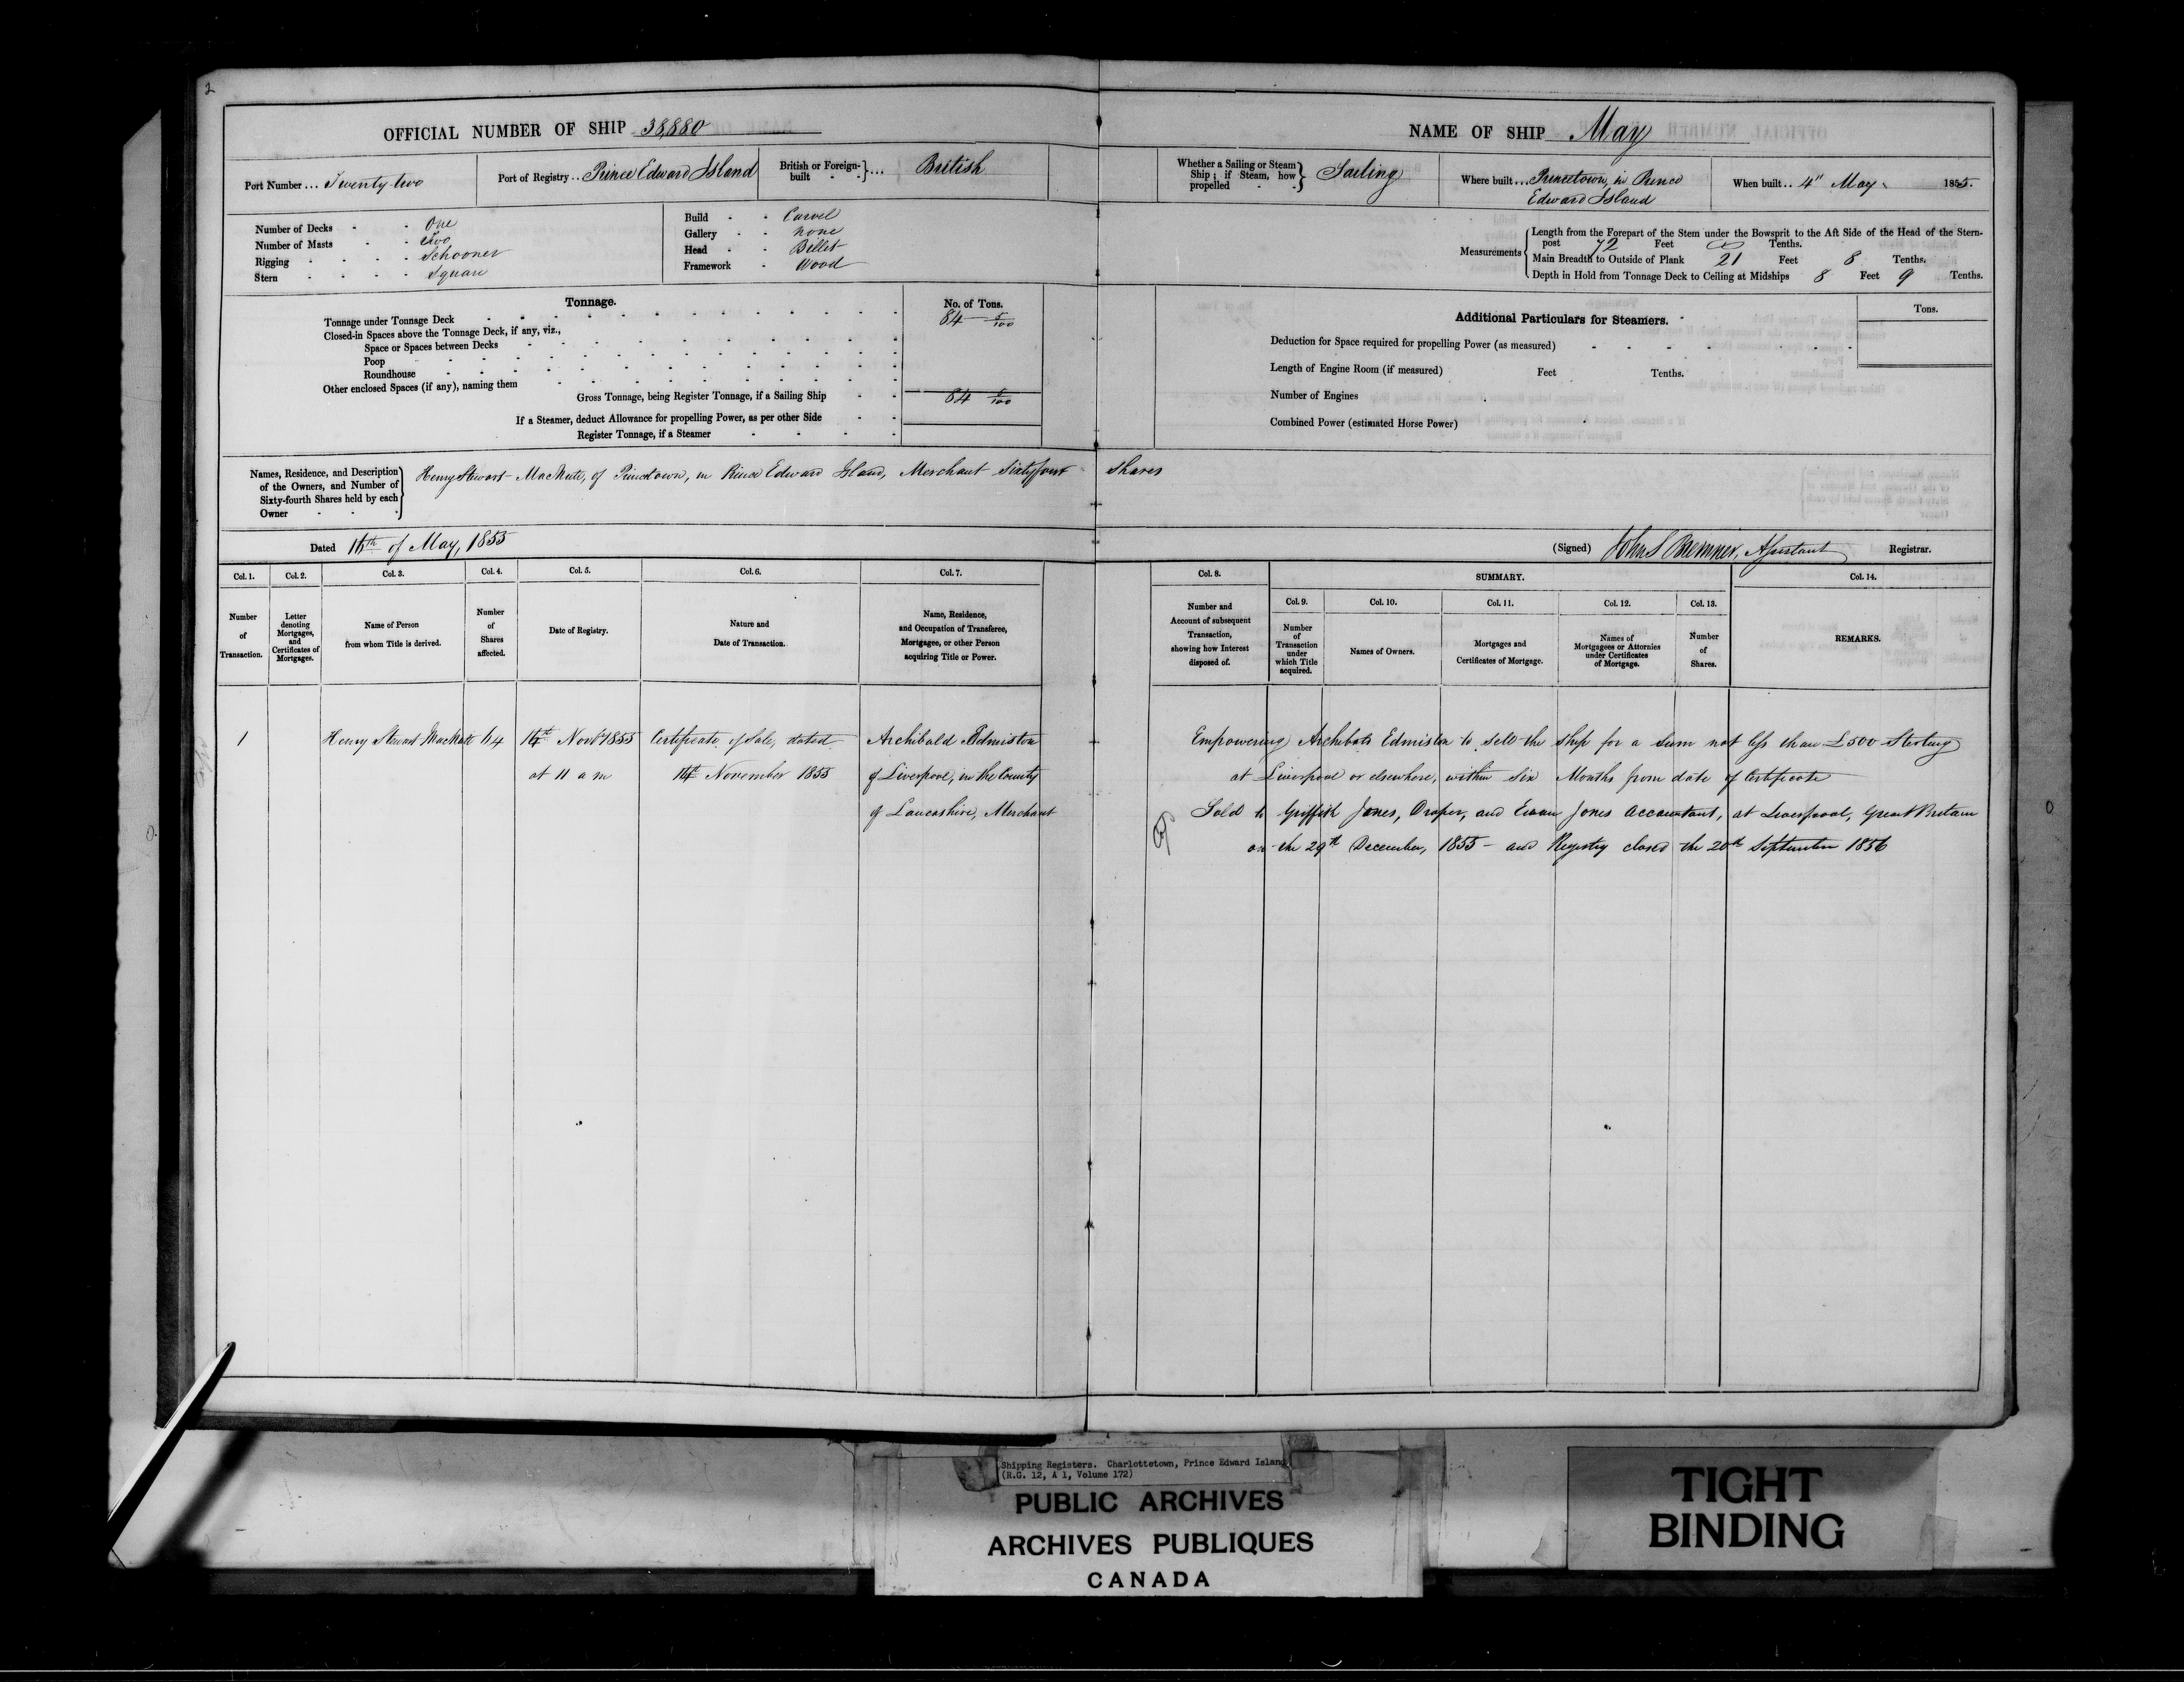 2
OFFICIAL NUMBER OF SHIP 38,880
Port Number ... Twenty two
Port of Registry .. Prince Edward Island
British or Foreign-built - - } ... British
Number of Decks - - One
Number of Masts - - Two
Rigging - - - - Schooner
Stern - - - - Square
Build - - Carvel
Gallery - - none
Head - - Billet
Framework - Wood
Tonnage.
No. of Tons.
Tonnage under Tonnage Deck 84 5/100
Closed-in Spaces above the Tonnage Deck, if any, viz.,
Space or Spaces between Decks
Poop
Roundhouse
Other enclosed Spaces (if any), naming them
Gross Tonnage, being Register Tonnage, if a Sailing Ship 84 5/100
If a Steamer, deduct Allowance for propelling Power, as per other Side
Register Tonnage, if a Steamer
NAME OF SHIP May
Whether a Sailing or Steam Ship; if Steam, how propelled - } Sailing
Where built ... Princetown, in Prince
Edward Island
When built .. 4" May 1855.
Measurements
Length from the Forepart of the Stem under the Bowsprit to the Aft Side of the Head of the Stern-
post 72 Feet Tenths.
Main Breadth to Outside of Plank 21 Feet 8 Tenths.
Depth in Hold from Tonnage Deck to Ceiling at Midships 8 Feet 9 Tenths.
Additional Particulars for Steamers.
Tons.
Deduction for Space required for propelling Power (as measured)
Length of Engine Room (if measured) Feet Tenths.
Number of Engines
Combined Power (estimated Horse Power)
Names, Residence, and Description
of the Owners, and Number of
Sixty-fourth Shares held by each
Owner
Henry Stewart MacNutt, of Princetown, in Prince Edward Island, Merchant Sixty four shares
Dated 16th of May, 1855
(Signed) John S Bremner, Assistant Registrar.
Col. 1. Col. 2. Col. 3. Col. 4. Col. 5. Col. 6. Col. 7. Col. 8. SUMMARY. Col. 14.
Col. 9. Col. 10. Col. 11. Col. 12. Col. 13.
Number of Transaction.
Letter denoting Mortgages, and Certificates of Mortgages.
Name of Person from whom Title is derived.
Number of Shares affected.
Date of Registry.
Nature and Date of Transaction.
Name, Residence, and Occupation of Transferee, Mortgagee, or other Person acquiring Title or Power.
Number and Account of subsequent Transaction, showing how Interest disposed of.
Number of Transaction under which Title acquired.
Names of Owners.
Mortgages and Certificates of Mortgage.
Names of Mortgagees or Attornies under Certificates of Mortgage.
Number of Shares.
REMARKS.
1 Henry Stewart MacNutt 64 14th Novbr 1855 Certificate of Sale, dated Archibald Edmiston
at 11 a m 14th November 1855 of Liverpool, in the County
of Lancashire, Merchant
Empowering Archibald Edmiston to sell the ship for a sum not less than £500 Sterling
at Liverpool or elsewhere, within six Months from date of Certificate
Sold to Griffith Jones, Draper, and Evan Jones Accountant, at Liverpool, Great Britain
on the 29th December, 1855 - and Registry closed the 20th September 1856
Shipping Registers. Charlottetown, Prince Edward Island
(R.G. 12, A 1, Volume 172)
PUBLIC ARCHIVES
ARCHIVES PUBLIQUES
CANADA
TIGHT
BINDING